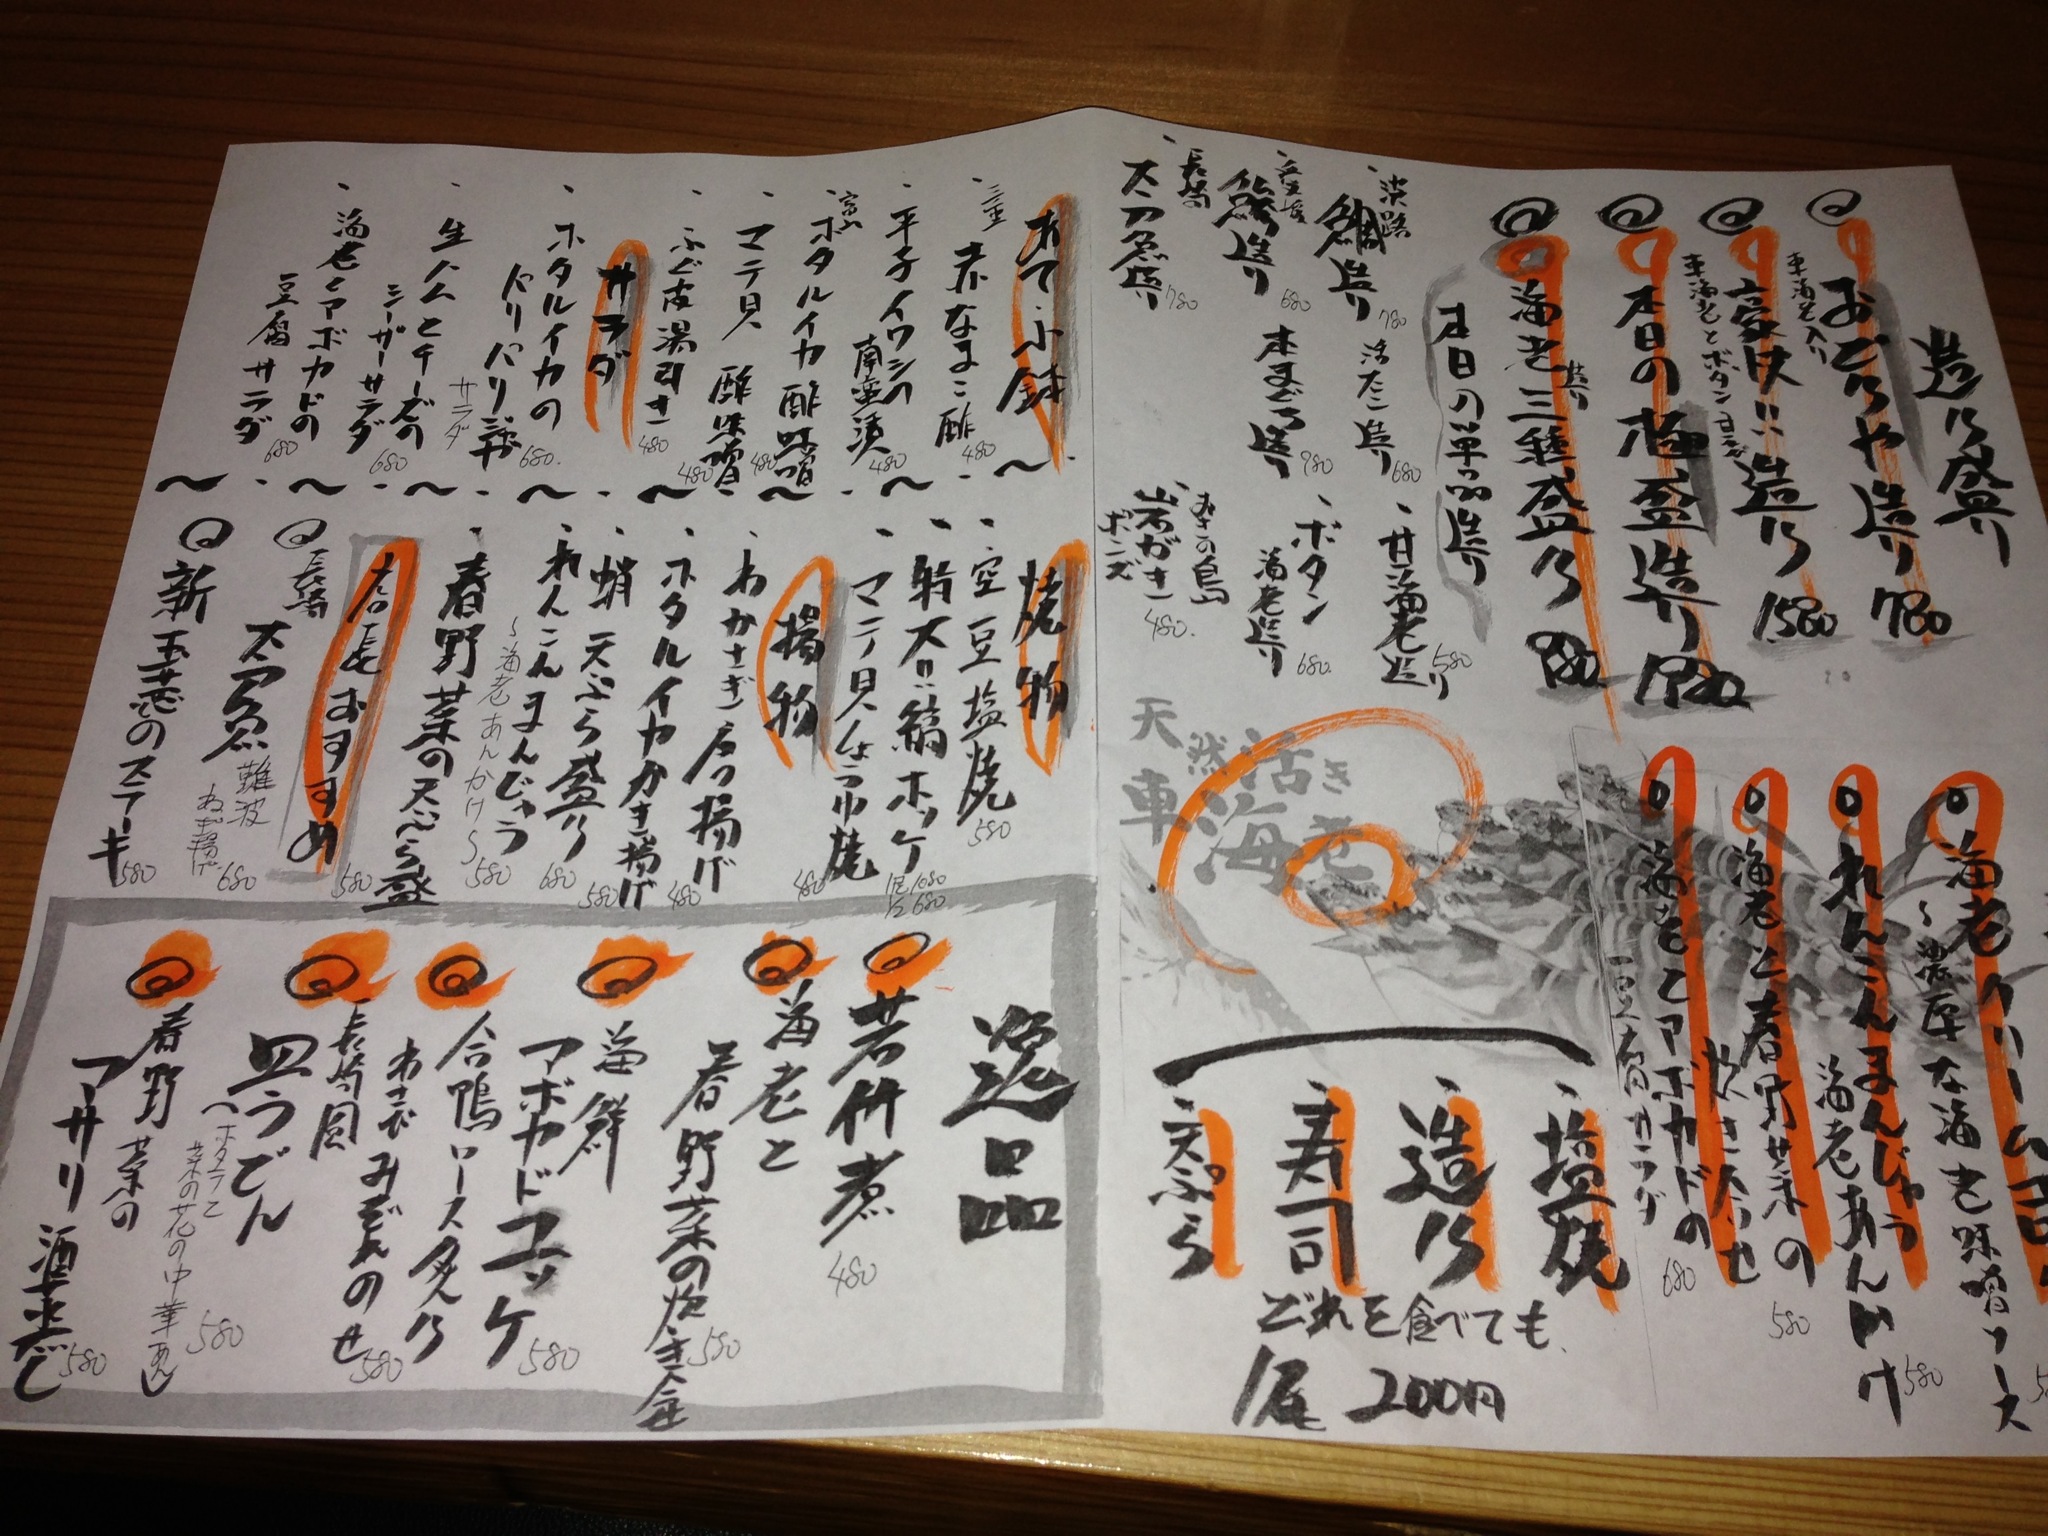 造り盛り
おどりや造り 780
車海老入り
豪快!!造り 1580
車海老とボタンヨコヅ
本日の極盛造り 1980
海老三種盛り
造り
本日の単品造り
淡路
鯛造り 780
活たこ造り 680
甘海老造り 580
造り 680
本まぐろ造り 980
ボタン
海老造り 680
長崎の
太刀魚造り 780
岩がき
ポンズ 480
天然活き
車海老
海老クリームコロ
〜濃厚な海老味噌ソース
れんこんまんじゅう
海老あんかけ 580
海老と春野菜の
580
海老とアボカドの
豆腐サラダ 680
塩焼
造り
寿司
天ぷら
どれを食べても
1尾 200円
あて小鉢
三重
赤なまこ酢 480
平子イワシの
南蛮漬 480
富山
ホタルイカ酢味噌 480
マテ貝 酢味噌 480
ふぐ皮湯引き 480
サラダ
ホタルイカの
パリパリ
サラダ 680
生ハムとチーズの
シーザーサラダ 680
海老とアボカドの
豆腐サラダ 680
焼物
空豆塩焼 580
特大!!縞ホッケ 1尾 1080
1/2 680
マテ貝しょうゆ焼 480
揚物
わかさぎ唐揚げ 480
ホタルイカかき揚げ 580
蛸天ぷら盛り 680
れんこんまんじゅう
〜海老あんかけ〜 580
春野菜の天ぷら盛 580
店長おすすめ
長崎
太刀魚
難波
ねぎ揚げ 680
新玉葱のステーキ 580
逸品
若竹煮 480
海老と
春野菜の炊き合 580
海鮮
アボカドユッケ 580
合鴨ロース炙り
わさびみぞれのせ 580
長崎風
皿うどん
〜ホタテと
菜の花の中華あん 580
春野菜の
アサリ酒蒸し 580